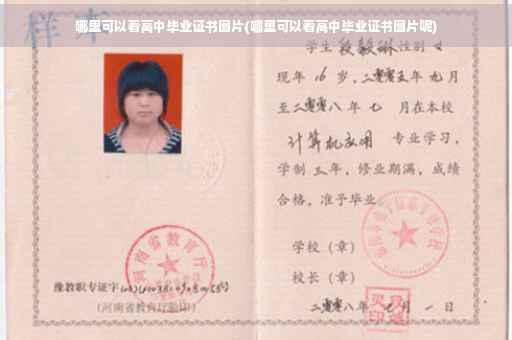 哪里可以看高中毕业证书图片(哪里可以看高中毕业证书图片呢)
样本
学生段毅琳性别女
现年16岁，二零零五年九月
至二零零八年七月在本校
计算机应用 专业学习，
学制三年，修业期满，成绩
合格，准予毕业。
学校（章）
校长（章）
二零零八年 月一日
河南省教育厅
豫教职专证字
(河南省教育厅验印)